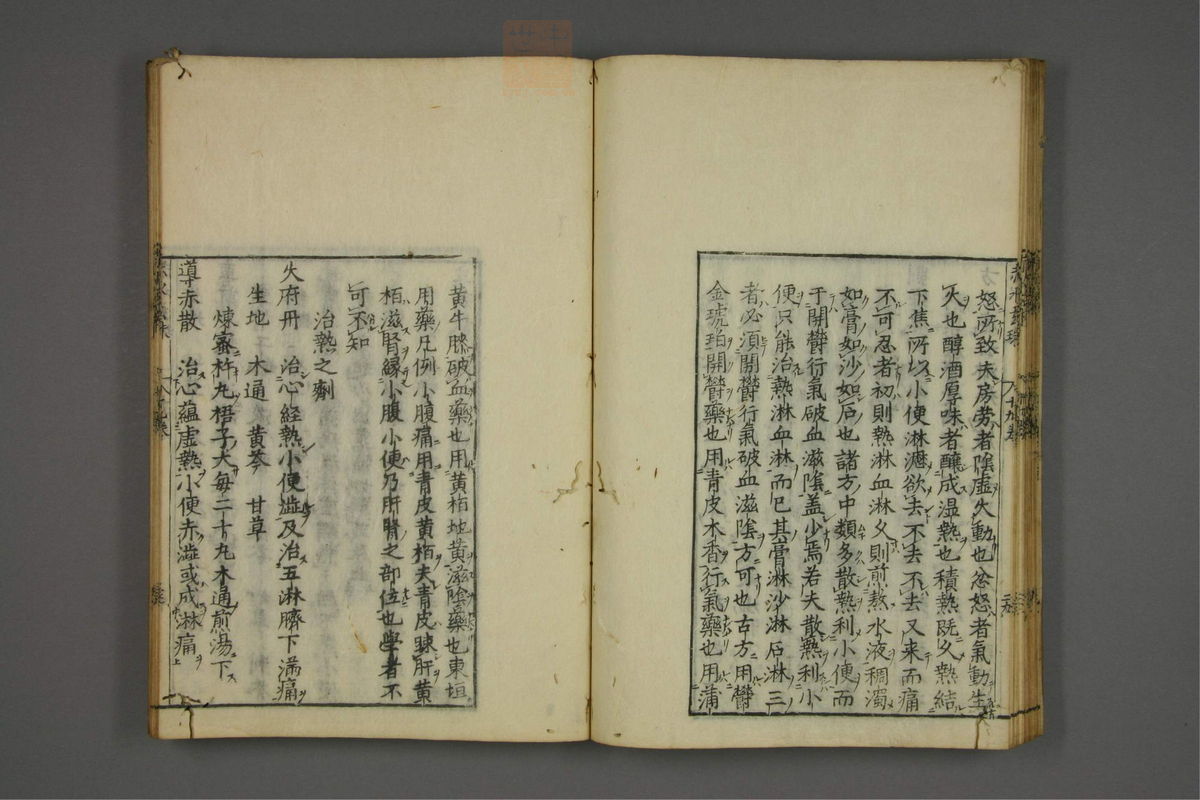 怒所致夫房劳者陰虚火動也忿怒者氣動生
火也醇酒厚味者釀成湿熱也積熱既久熱結
下焦所以小便淋瀝欲去不去不去又来而痛
不可忍者初則熱淋血淋久則煎熬水液稠濁
如膏如沙如石也諸方中類多散熱利小便而
于開欝行氣破血滋陰盖少焉若夫散熱利小
便只能治熱淋血淋而已其膏淋沙淋石淋三
者必須開欝行氣破血滋陰方可也古方用欝
金琥珀開欝藥也用青皮木香行氣藥也用蒲
黄牛膝破血藥也用黄栢地黄滋陰藥也東垣
用藥凡例小腹痛用青皮黄栢夫青皮踈肝黄
栢滋腎縁小腹小便乃肝腎之部位也學者不
可不知
治熱之劑
火府丹 治心経熱小便澁及治五淋臍下満痛
生地 木通 黄芩 甘草
煉蜜杵丸梧子大每二十丸木通煎湯下
導赤散 治心蘊虚熱小便赤澁或成淋痛